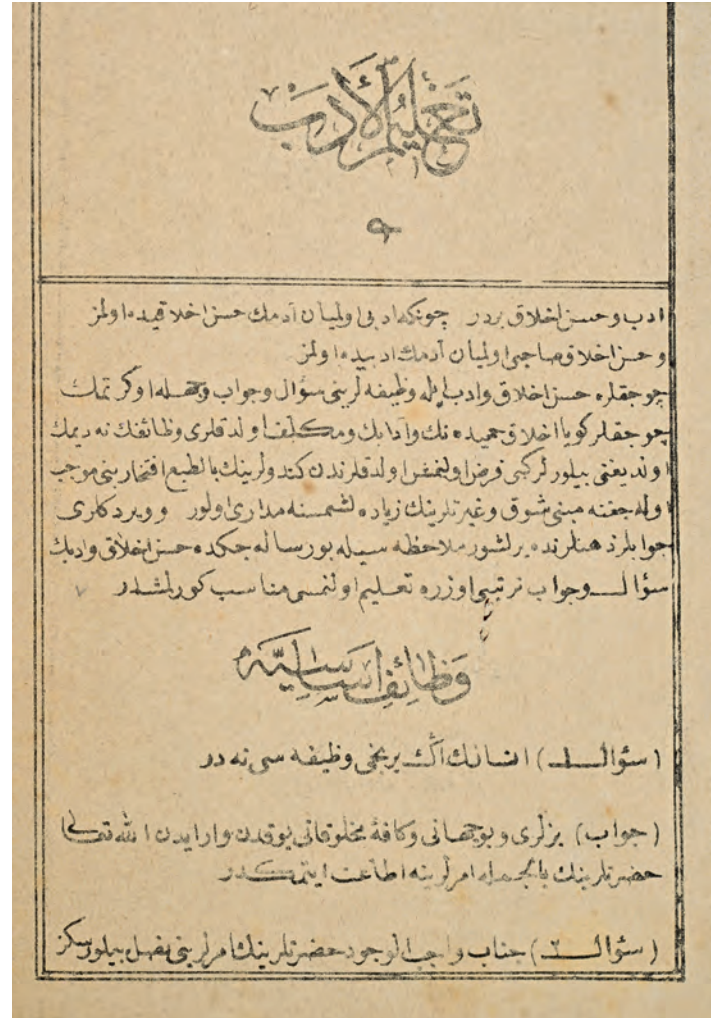 تعليم الأدب
ادب وحسن اخلاق بردر چونكه ادبى اولميان آدمك حسن اخلاقيده اولمز
و حسن اخلاق صاحبى اولميان آدمك ادبيده اولمز
چوجقلره حسن اخلاق وادب ايله وظيفه لرينى سؤال وجواب وجهله اوكرتمك
چوجقلر كويا اخلاق حميده نك وآدابك ومكلف اولدقلرى وظائفك نه ديمك
اولديغنى بيلورلر كبى فرض اولنمش اولدقلرندن كندولرينك بالطبع افتخارينى موجب
اوله جغنه مبنى شوق وغيرتلرينك زياده لشمسنه مدارى اولور وويردكلرى
جوابلر ذهنلرنده يرلشور ملاحظه سيله بورساله جكده حسن اخلاق وادبك
سؤال وجواب ترتيبى اوزره تعليم اولنمسى مناسب كورلمشدر
وظائف اساسيه
(سؤال ١) انسانك اڭ برنجى وظيفه سى نه در
(جواب) بزلرى وبوجهانى وكافهٔ مخلوقاتى يوقدن وارايدن الله تعالى
حضرتلرينك بالجمله امرلرينه اطاعت ايتمكدر
(سؤال ٢) جناب واجب الوجود حضرتلرينك امرلرينى نصل بيلورسكز